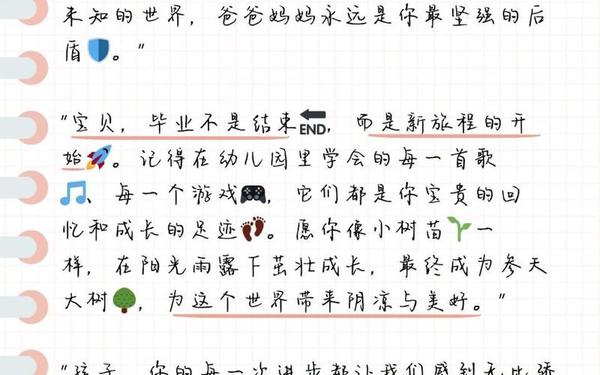 未知的世界，爸爸妈妈永远是你最坚强的后
盾🛡️。"
"宝贝，毕业不是结束🔚，而是新旅程的开
始🚀。记得在幼儿园里学会的每一首歌
🎵、每一个游戏🎮，它们都是你宝贵的回
忆和成长的足迹👣。愿你像小树苗🌱一
样，在阳光雨露下茁壮成长，最终成为参天
大树🌳，为这个世界带来阴凉与美好。"
"孩子，你的每一次进步都让我们感到无比骄